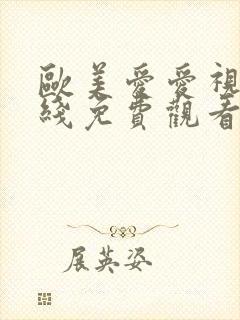 歐美愛愛視
綫免費觀看
展英姿